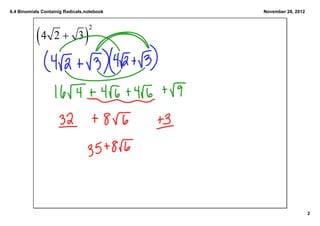 6.4 Binomials Containig Radicals.notebook
November 26, 2012
(4√2 + √3)²
(4√2 + √3)(4√2 + √3)
16√4 + 4√6 + 4√6 + √9
32 + 8√6 +3
35+8√6
2